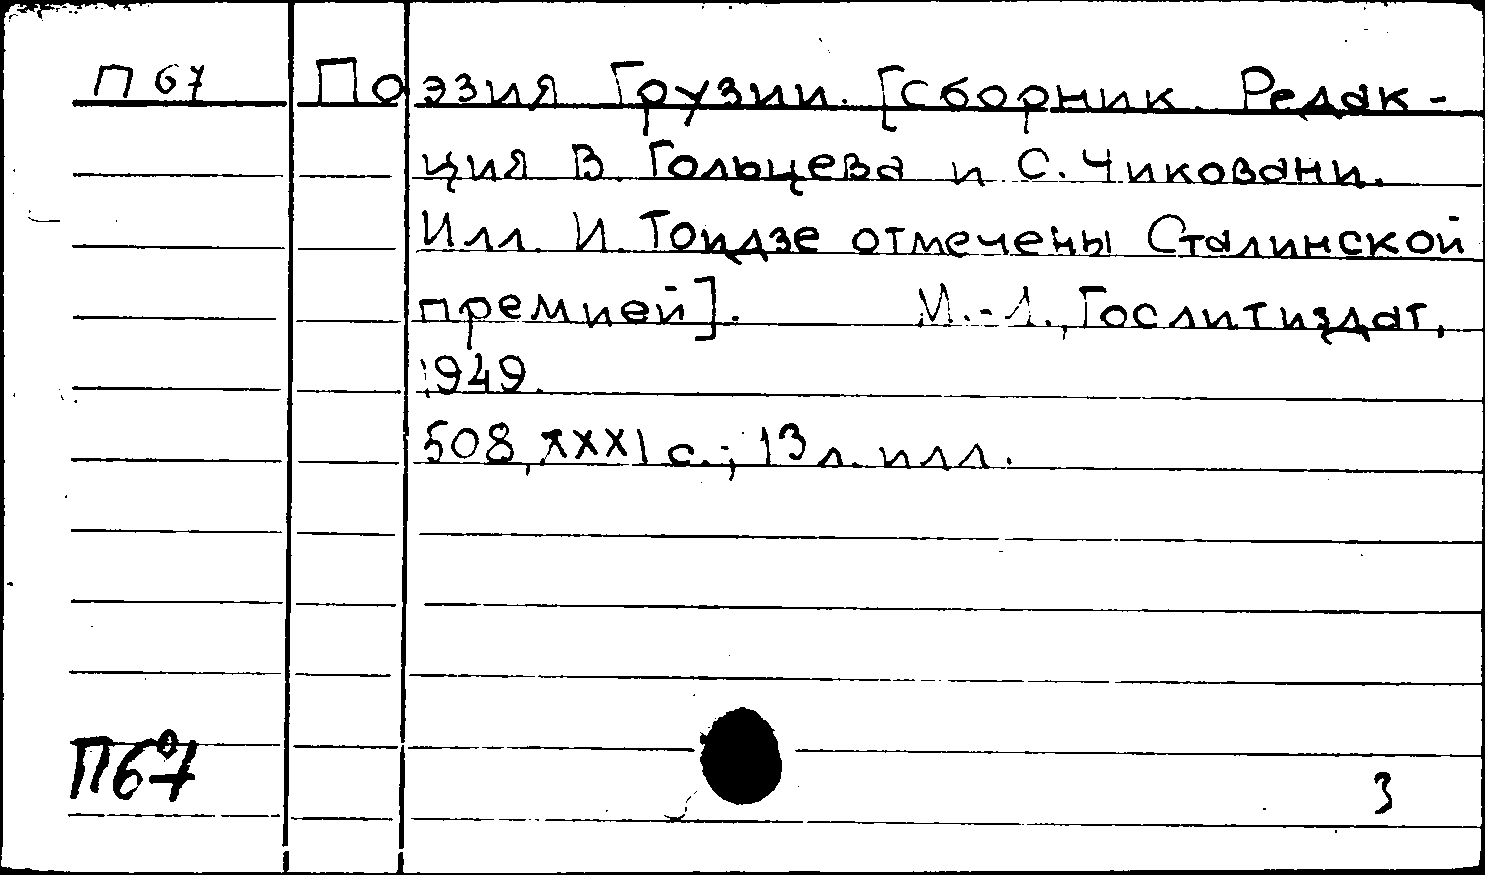 П 67 Поэзия Грузии. [Сборник. Редак-
ция В. Гольцева и С. Чиковани.
Илл. И. Тоидзе отмечены Сталинской
премией]. М.-Л., Гослитиздат,
1949.
508, XXXI с.; 13 л. илл.
П67
3